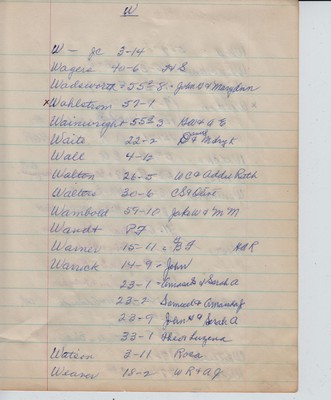 W
W - Jc 3-14
Wagers 40-6 H S
Wadsworth 55-8 - John H & Mary Ann
x Wahlstrom 57-7
Wainwright 55-3
Waite 22-2 D & Mary K
Wall 4-12
Walton 26-5 W C & Addie Roth
Walton 30-6 C E & Olive
Wambold 59-10 Jake W & M M
Wandt P F
Warner 15-11
Warnak 14-9 - John
23-1 - Amos & Sarah A
23-2 Samuel & Amanda J
23-9 John H & Sarah A
33-1 Luzena
Watson 3-11 Rosa
Weaver 18-2 W R & A J